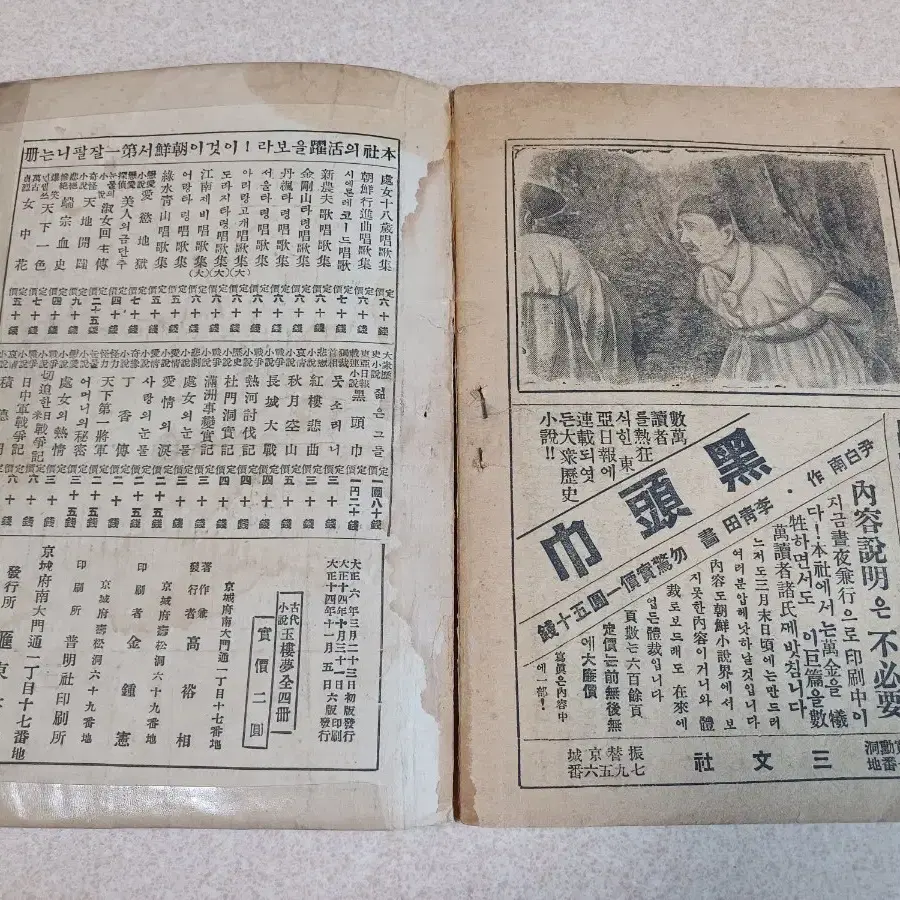 尹白南 作・李靑田 畵
黑頭巾
勿驚實價一圓五十錢
數萬
讀者
를熱狂
식힌 東
亞日報에
連載되엿
든大衆歷史
小說!!
內容說明은不必要
지금晝夜兼行으로印刷中이
다! 本社에서는萬金을犧
牲하면서도 이巨篇을數
萬讀者諸氏께밧침니다
느저도三月末日頃에는만드러
여러분압헤낫하날것임니다
內容도朝鮮小說界에서보
지못한內容이거니와 體
裁로보드래도 在來에
업든體裁입니다
頁數는六百餘頁
定價는前無後無
에大廉價
寫眞은內容中
에一部!
三文社
振替京城
七九五六番
本社의活躍을보라! 이것이朝鮮서第一잘팔니는冊
處女十八歲唱歌集 定價六十錢
朝鮮行進曲唱歌集 定價六十錢
시에론레코ー드唱歌 定價七十錢
新農夫歌唱歌集 定價六十錢
金剛山타령唱歌集 定價六十錢
丹楓타령唱歌集 定價六十錢
서울타령唱歌集 定價六十錢
아리랑고개唱歌集(大) 定價六十錢
도라지타령唱歌集(大) 定價六十錢
江南제비唱歌集(大) 定價六十錢
어랑타령唱歌集 定價六十錢
綠水靑山唱歌集 定價五十錢
戀愛小說 愛慾地獄 定價五十錢
探偵小說 美人의금단추 定價四十錢
눈물의 淑女回生傳 定價二十五錢
奇怪小說 天地開闢 定價九十錢
悲絶 端宗血史 定價四十錢
天下一色 定價七十錢
萬古貞烈 女中花 定價五十錢
大衆歷史小說 젊은그들 定價一圓八十錢
東亞日報連載小說 黑頭巾 定價一円二十錢
못소리니 定價三十錢
悲戀小說 紅樓悲曲 定價三十錢
秋月空山 定價三十錢
戰爭小說 長城大戰 定價四十錢
熱河討伐記 定價四十錢
歷史小說 杜門洞實記 定價四十錢
戰爭小說 滿洲事變實記 定價四十錢
悲劇小說 處女의눈물 定價二十錢
愛情小說 愛情의淚 定價二十五錢
愛情小說 사랑의눈물 定價二十五錢
丁香傳 定價二十錢
天下第一將軍 定價三十錢
어머니의秘密 定價二十五錢
戀愛小說 處女의熱情 定價三十錢
切迫한日米戰爭記 定價三十五錢
戰爭小說 日中軍戰爭記 定價五十錢
定價六十錢
大正六年三月二十三日初版發行
大正十四年十月三十一日印刷
大正十四年十一月五日六版發行
古代小說 玉樓夢全四冊
實價二圓
京城府南大門通一丁目十七番地
著作兼發行者 高裕相
京城府壽松洞六十九番地
印刷者 金鍾憲
京城府壽松洞六十九番地
印刷所 普明社印刷所
京城府南大門通一丁目十七番地
發行所 匯東